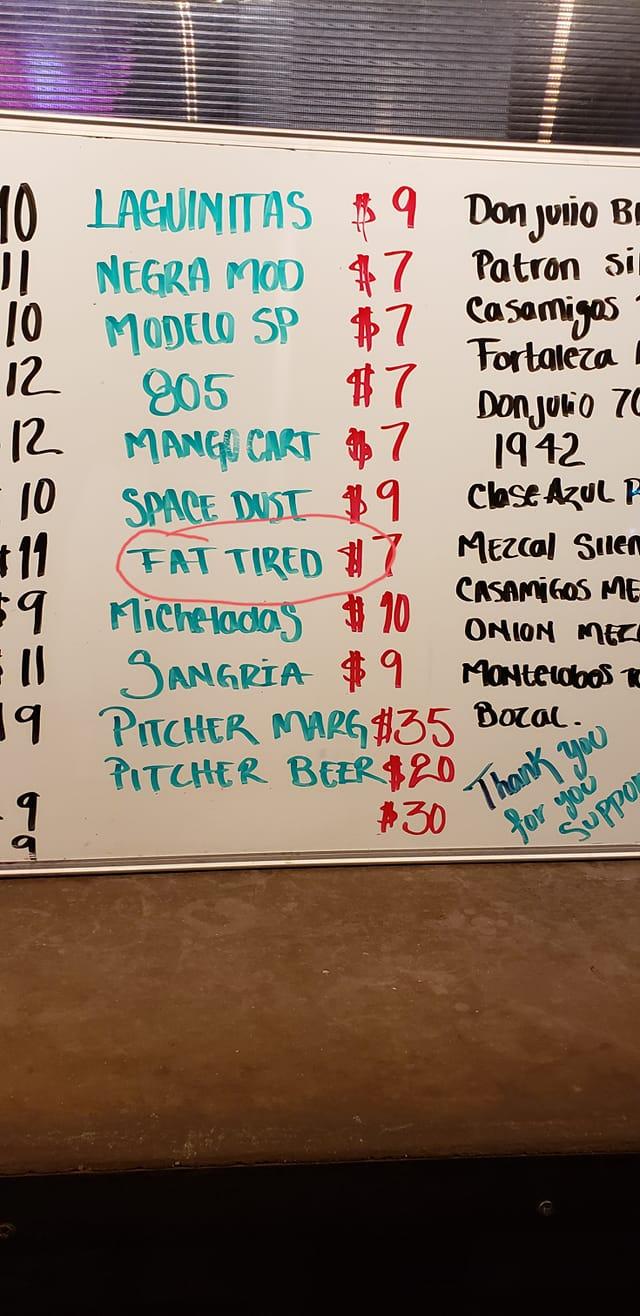 10
11
10
12
12
10
$11
$9
$11
19
9
9
LAGUINITAS $9
NEGRA MOD $7
MODELO SP $7
805 $7
MANGO CART $7
SPACE DUST $9
FAT TIRED $7
Micheladas $10
SANGRIA $9
PITCHER MARG $35
PITCHER BEER $20
$30
Don Julio
Patron
Casamigos
Fortaleza
Don Julio 70
1942
Clase Azul
Mezcal
CASAMIGOS
ONION
Montelobos
Bozal.
Thank you
for you